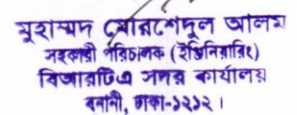 মুহাম্মদ মোরশেদুল আলম
সহকারী পরিচালক (ইঞ্জিনিয়ারিং)
বিআরটিএ সদর কার্যালয়
বনানী, ঢাকা-১২১২।